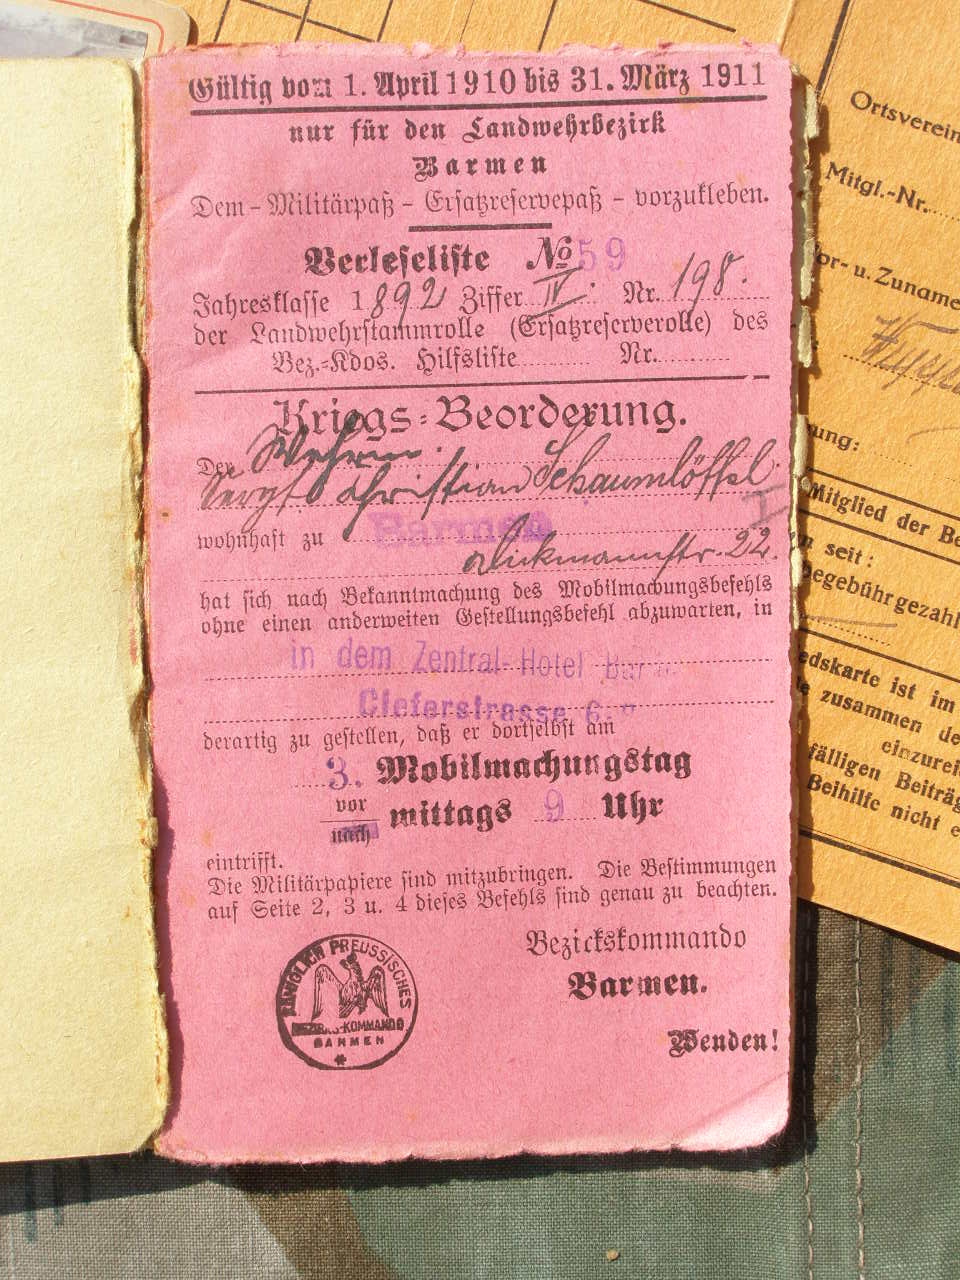 Gültig vom 1. April 1910 bis 31. März 1911
nur für den Landwehrbezirk
Barmen
Dem - Militärpaß - Ersatzreservepaß - vorzukleben.
Verleseliste № 59
Jahresklasse 1892 Ziffer IV. Nr. 198.
der Landwehrstammrolle (Ersatzreserverolle) des
Bez.-Kdos. Hilfsliste Nr.
Kriegs-Beorderung.
Der Wehrm.
Sergt. Christian Schaumlöffel
I
wohnhaft zu Barmen
Dickmannstr. 22.
hat sich nach Bekanntmachung des Mobilmachungsbefehls
ohne einen anderweiten Gestellungsbefehl abzuwarten, in
in dem Zentral-Hotel
derartig zu gestellen, daß er dortselbst am
3. Mobilmachungstag
vor
nach
mittags 9 Uhr
eintrifft.
Die Militärpapiere sind mitzubringen. Die Bestimmungen
auf Seite 2, 3 u. 4 dieses Befehls sind genau zu beachten.
Bezirkskommando
Barmen.
KÖNIGLICH PREUSSISCHES
BEZIRKS-KOMMANDO
BARMEN
Wenden!
Ortsverein
Mitgl.-Nr.
Vor- u. Zuname
ung:
Mitglied der Be
seit:
begebühr gezahl
edskarte ist im
zusammen de
einzurei
fälligen Beiträg
Beihilfe nicht e